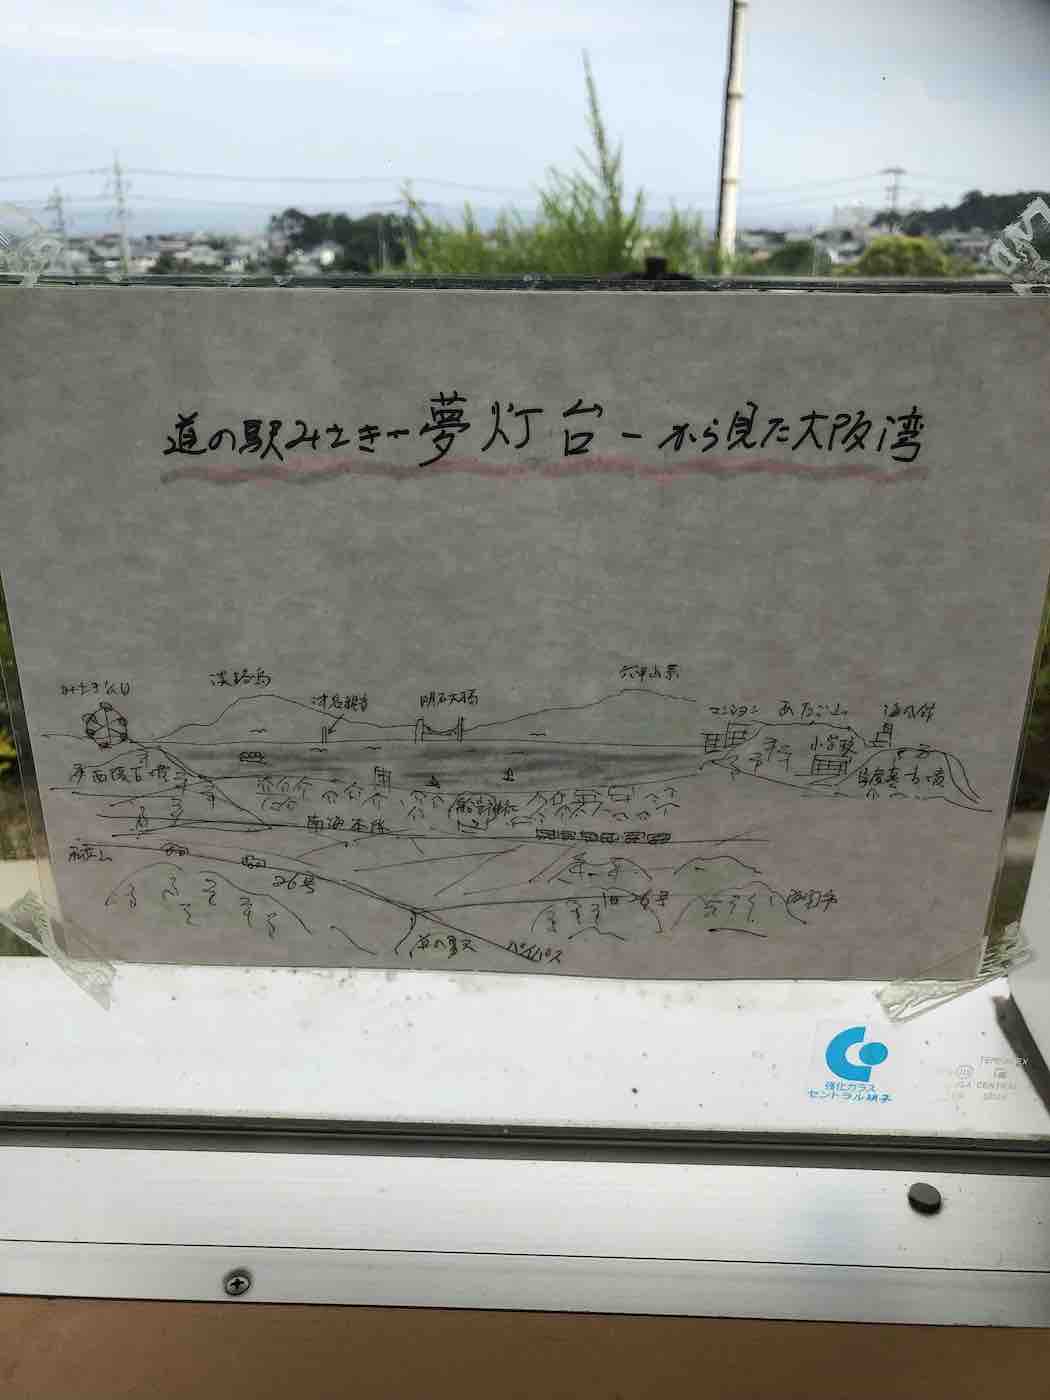 道の駅みさきー夢灯台ーから見た大阪湾
みさき公園
淡路島
津名観音
明石大橋
六甲山系
マンション
あたご山
小学校
西陵古墳
古墳
南海本線
和歌山
26号
旧26号
道の駅
バイパス
強化ガラス
セントラル硝子